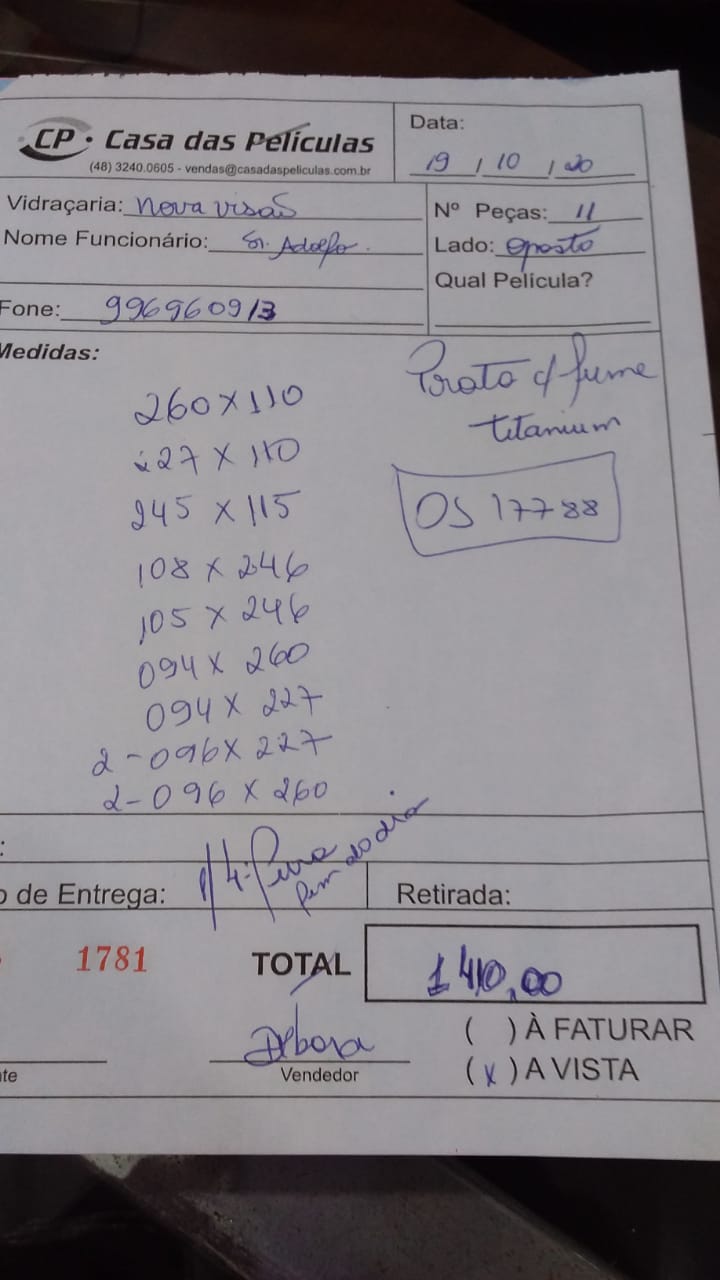 CP • Casa das Películas
(48) 3240.0605 - vendas@casadaspeliculas.com.br
Data:
19 / 10 / 20
Vidraçaria: Nova visão
Nome Funcionário: Sr. Adolfo.
Fone: 996960913
Nº Peças: 11
Lado: oposto
Qual Película?
Medidas:
Prata c/ fume
titanium
OS 17788
260 x 110
227 x 110
245 x 115
108 x 246
105 x 246
094 x 260
094 x 227
2 - 096 x 227
2 - 096 x 260
:
o de Entrega: p/ 4ª feira
fim do dia
Retirada:
1781
TOTAL
1410,00
( ) À FATURAR
(x) A VISTA
Debora
Vendedor
te